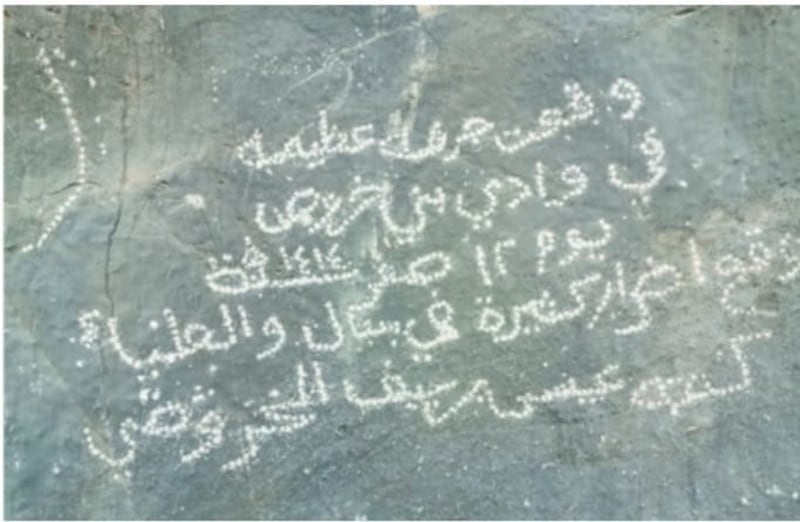 وقعت جرفه عظيمه
في وادي بني خروص
يوم ١٢ صفر ١٤١٤
وقع اضرار كثيرة في ستال والعلياء
كتبه عيسى بن سيف الخروصي